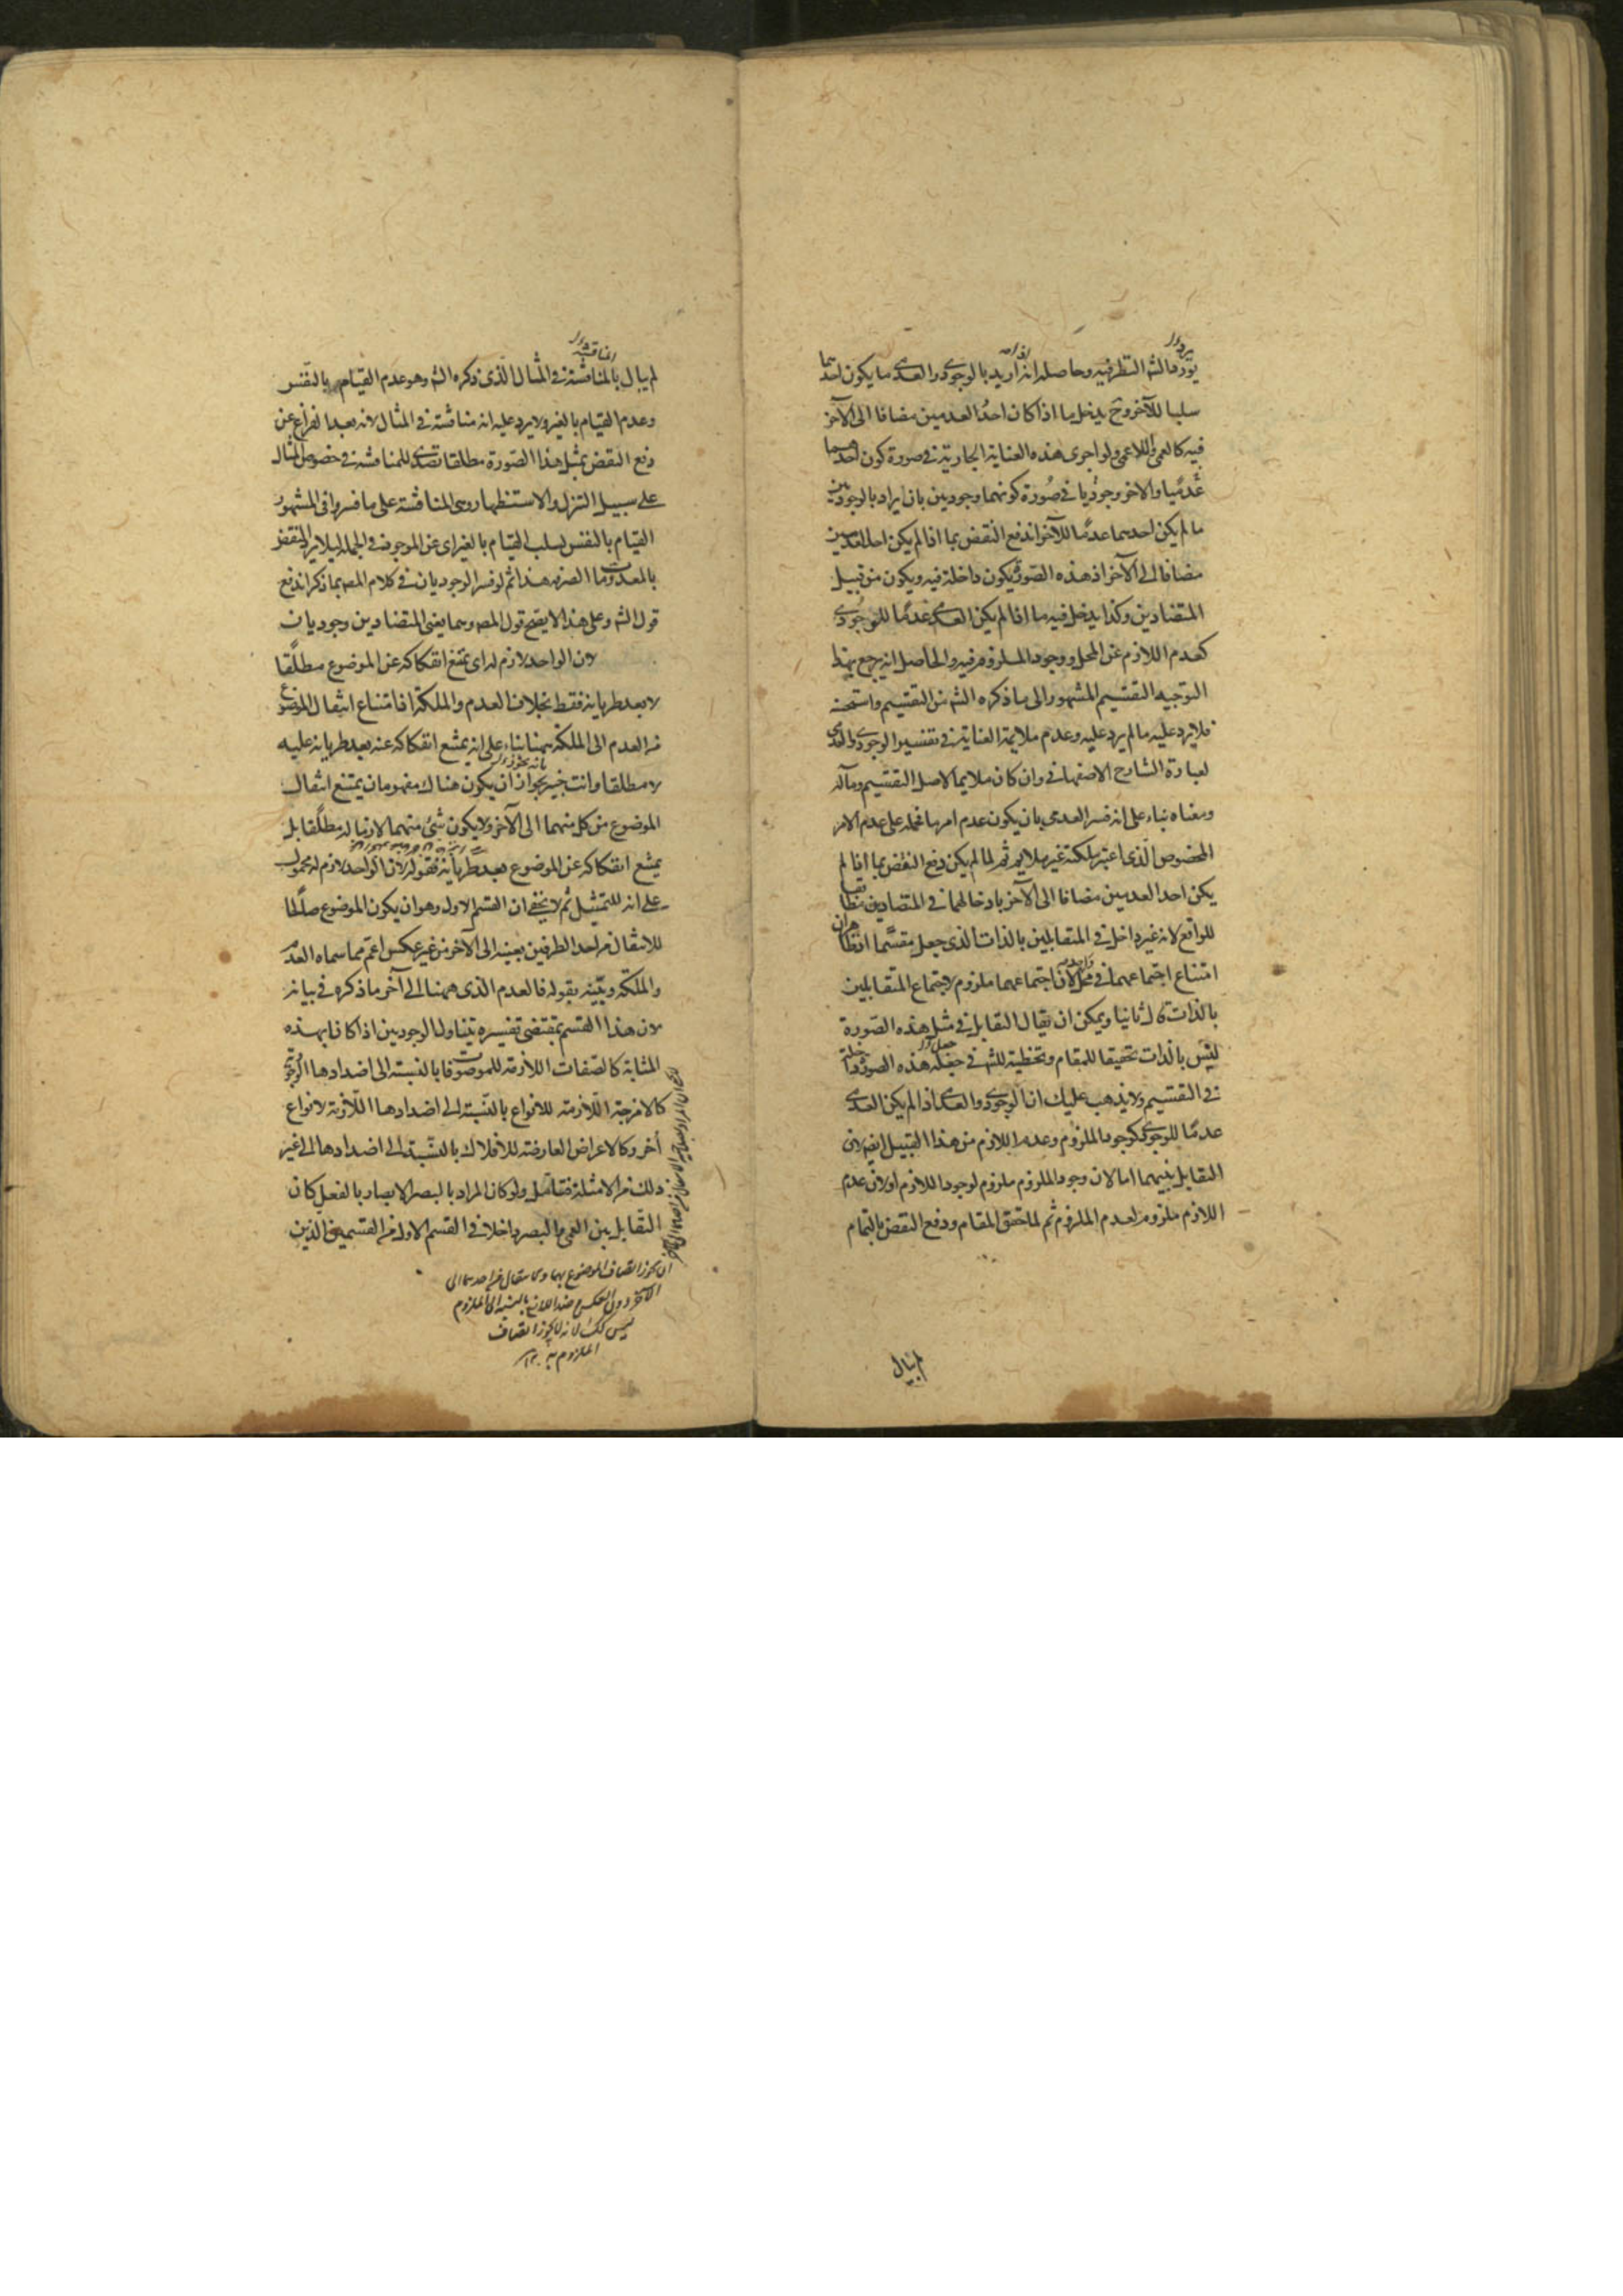 يورد الشه النظر فيه وحاصله انه اريد بالوجودى والعدمى ما يكون احدهما
سلبا للآخر وح يدخل ما اذا كان احد العدمين مضافا الى الآخر
فيه كالعمى واللاعمى ولو اجرى هذه العناية الجارية فى صورة كون احدهما
عدميا والاخر وجوديا فى صورة كونهما وجوديين بان يراد بالوجوديين
ما لم يكن احدهما عدما للآخر اندفع النقض بما اذا لم يكن احد العدمين
مضافا الى الآخر اذ هذه الصورة يكون داخلة فيه ويكون من قبيل
المتضادين وكذا يدخل فيه ما اذا لم يكن العدمى عدما للوجودى
كعدم اللازم عن المحل ووجود الملزوم فيه والحاصل انه يرجع بهذا
التوجيه التقسيم المشهور الى ما ذكره الشه من التقسيم واستحسنه
فلا يرد عليه ما لم يرد عليه وعدم ملايمة العناية فى تفسير الوجودى والعدمى
لعبارة الشارح الاصفهانى وان كان ملايما لاصل التقسيم ومآله
ومعناه بناء على انه فسر العدمى بان يكون عدم امر ما فحمله على عدم الامر
المخصوص الذى اعتبر ملكة غير ملايم ثم لما لم يكن دفع النقض بما اذا لم
يكن احد العدمين مضافا الى الآخر بادخالهما فى المتضادين مطابقا
للواقع لانه غير داخل فى المتقابلين بالذات الذى جعل مقسما اذ ظاهر ان
امتناع اجتماعهما فى محل لان اجتماعهما ملزوم لاجتماع المتقابلين
بالذات قال ثانيا ويمكن ان يقال التقابل فى مثل هذه الصورة
ليس بالذات تحقيقا للمقام وتخطية للشه فى جعله هذه الصورة داخلة
فى التقسيم ولا يذهب عليك ان الوجودى والعدمى اذا لم يكن العدمى
عدما للوجودى كوجود الملزوم وعدم اللازم من هذا القبيل ايضا فان
التقابل بينهما اما لان وجود الملزوم ملزوم لوجود اللازم او لان عدم
اللازم ملزوم لعدم الملزوم ثم لما حقق المقام ودفع النقض بالتمام
لم يبال
لم يبال بالمناقشة فى المثال الذى ذكره الشه وهو عدم القيام بالنفس
وعدم القيام بالغير ولا يرد عليه انه مناقشة فى المثال لانه بعد الفراغ عن
دفع النقض بمثل هذا الصورة مطلقا تصدى للمناقشة فى خصوص المثال
على سبيل التنزل والاستظهار وهى المناقشة على ما فسروا فى المشهور
القيام بالنفس بسلب القيام بالغير اى عن الموجود فى الجملة ليلا يرد النقض
بالمعدومات الصرفة هذا ثم لو فسر الوجوديان فى كلام المص بما ذكر اندفع
قول الشه وعلى هذا لا يصح قول المص وهما يعنى المتضادين وجوديان
لان الواحد لازم له اى يمتنع انفكاكه عن الموضوع مطلقا
لا بعد طريانه فقط بخلاف العدم والملكة اذ امتناع انتقال الموضوع
من العدم الى الملكة ههنا بناء على انه يمتنع انفكاكه عنه بعد طريانه عليه
لا مطلقا وانت خبير بجواز ان يكون هناك مفهومان يمتنع انتقال
الموضوع من كل منهما الى الآخر ولا يكون شئ منهما لازما له مطلقا بل
يمتنع انفكاكه عن الموضوع بعد طريانه فقوله لان الواحد لازم له محمول
على انه للتمثيل ثم لا يخفى ان القسم الاول وهو ان يكون الموضوع صالحا
للانتقال من احد الطرفين بعينه الى الآخر من غير عكس اعم مما سماه العدم
والملكة وبينه بقوله فالعدم الذى ههنا الى آخر ما ذكره فى بيانه
لان هذا القسم بمقتضى تفسيره يتناول الوجوديين اذا كانا بهذه
المثابة كالصفات اللازمة للموصوفات بالنسبة الى اضدادها الوجودية
كالامزجة اللازمة للانواع بالنسبة الى اضدادها اللازمة لانواع
أخر وكالاعراض العارضة للافلاك بالنسبة الى اضدادها الى غير
ذلك من الامثلة فتأمل ولو كان المراد بالبصر الابصار بالفعل كان
التقابل بين العمى والبصر داخلا فى القسم الاول من القسمين الذين
ان يجوز اتصاف الموضوع بهما والانتقال من احدهما الى
الآخر دون العكس وضد اللازم بالنسبة الى الملزوم
ليس كذلك لانه لا يجوز اتصاف
الملزوم به ١٢